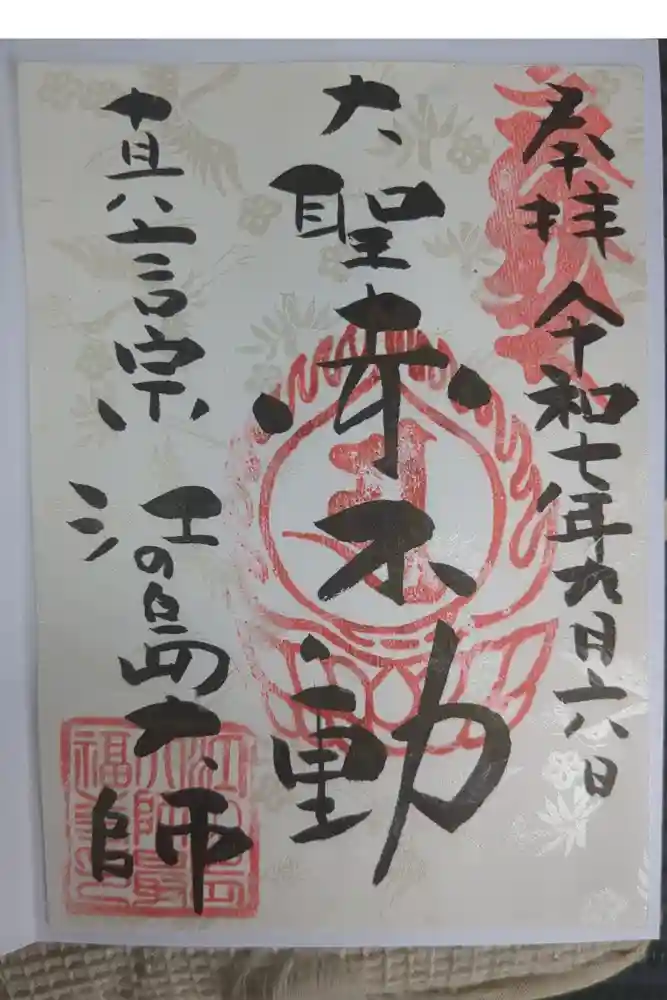 奉拝 令和七年六月六日
大聖赤不動
真言宗 江の島大師